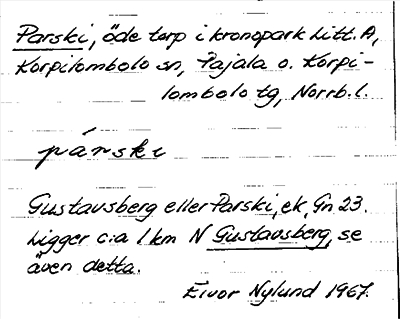 Parski, öde torp i kronopark Litt. A,
Korpilombolo sn, Pajala o. Korpi-
lombolo tg, Norrb. l.
párski
Gustavsberg eller Parski, ek, Gn 23.
Ligger c:a 1 km N Gustavsberg, se
även detta.
Eivor Nylund 1967.